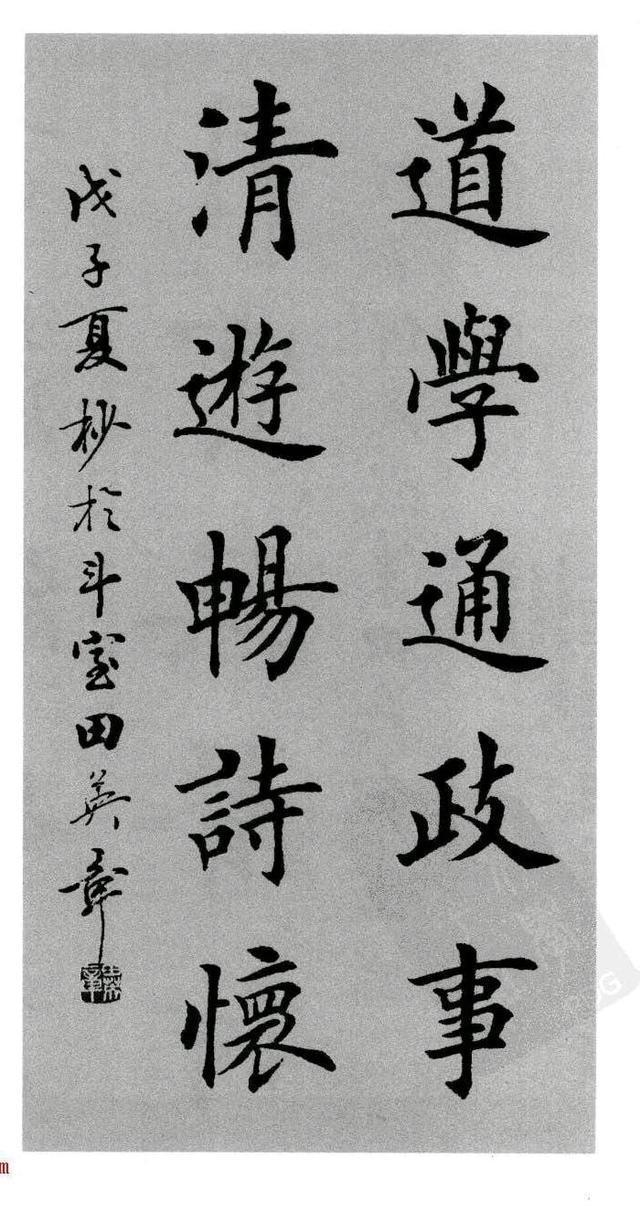 道學通政事
清遊暢詩懷
戊子夏杪於斗室田英章
m